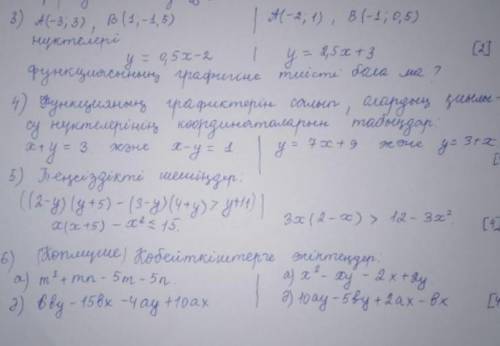 3) A(-3; 3), B(1, -1,5) | A(-2, 1), B(-1; 0,5)
нүктелері
y = 0,5x-2 | y = 2,5x+3 [2]
функциясының графигіне тиісті бола ма?
4) Функцияның графиктерін салып, олардың қиылы-
су нүктелерінің координаталарын табыңдар:
x+y = 3 және x-y = 1 | y = 7x+9 және y = 3+x
5) Теңсіздікті шешіңдер:
((2-y)(y+5) - (3-y)(4+y) > y+11)
x(x+5) - x² ≤ 15. | 3x(2-x) > 12-3x² [1]
6) Көбейткіштерге жіктеңдер:
а) m²+mn-5m-5n. | а) x²-xy-2x+2y
б) 6by-15bx-4ay+10ax | б) 10ay-5by+2ax-bx [4